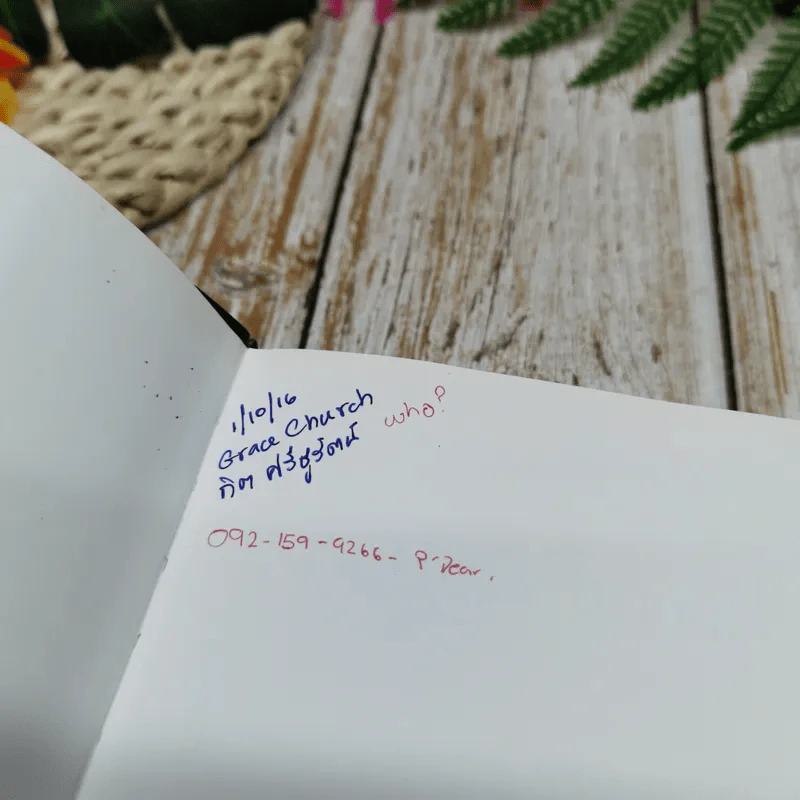 1/10/16
Grace Church who?
กิต ศรีชูรัตน์
092-159-9266- P'Dear.